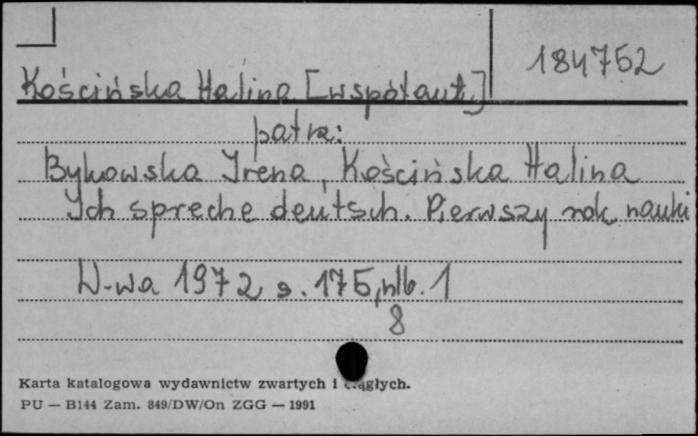 184752
Kościńska Halina [współaut.]
patrz:
Bykowska Irena, Kościńska Halina
Ich spreche deutsch. Pierwszy rok nauki
W-wa 1972 s. 175, nlb. 1
8
Karta katalogowa wydawnictw zwartych i ciągłych.
PU — B144 Zam. 849/DW/On ZGG — 1991